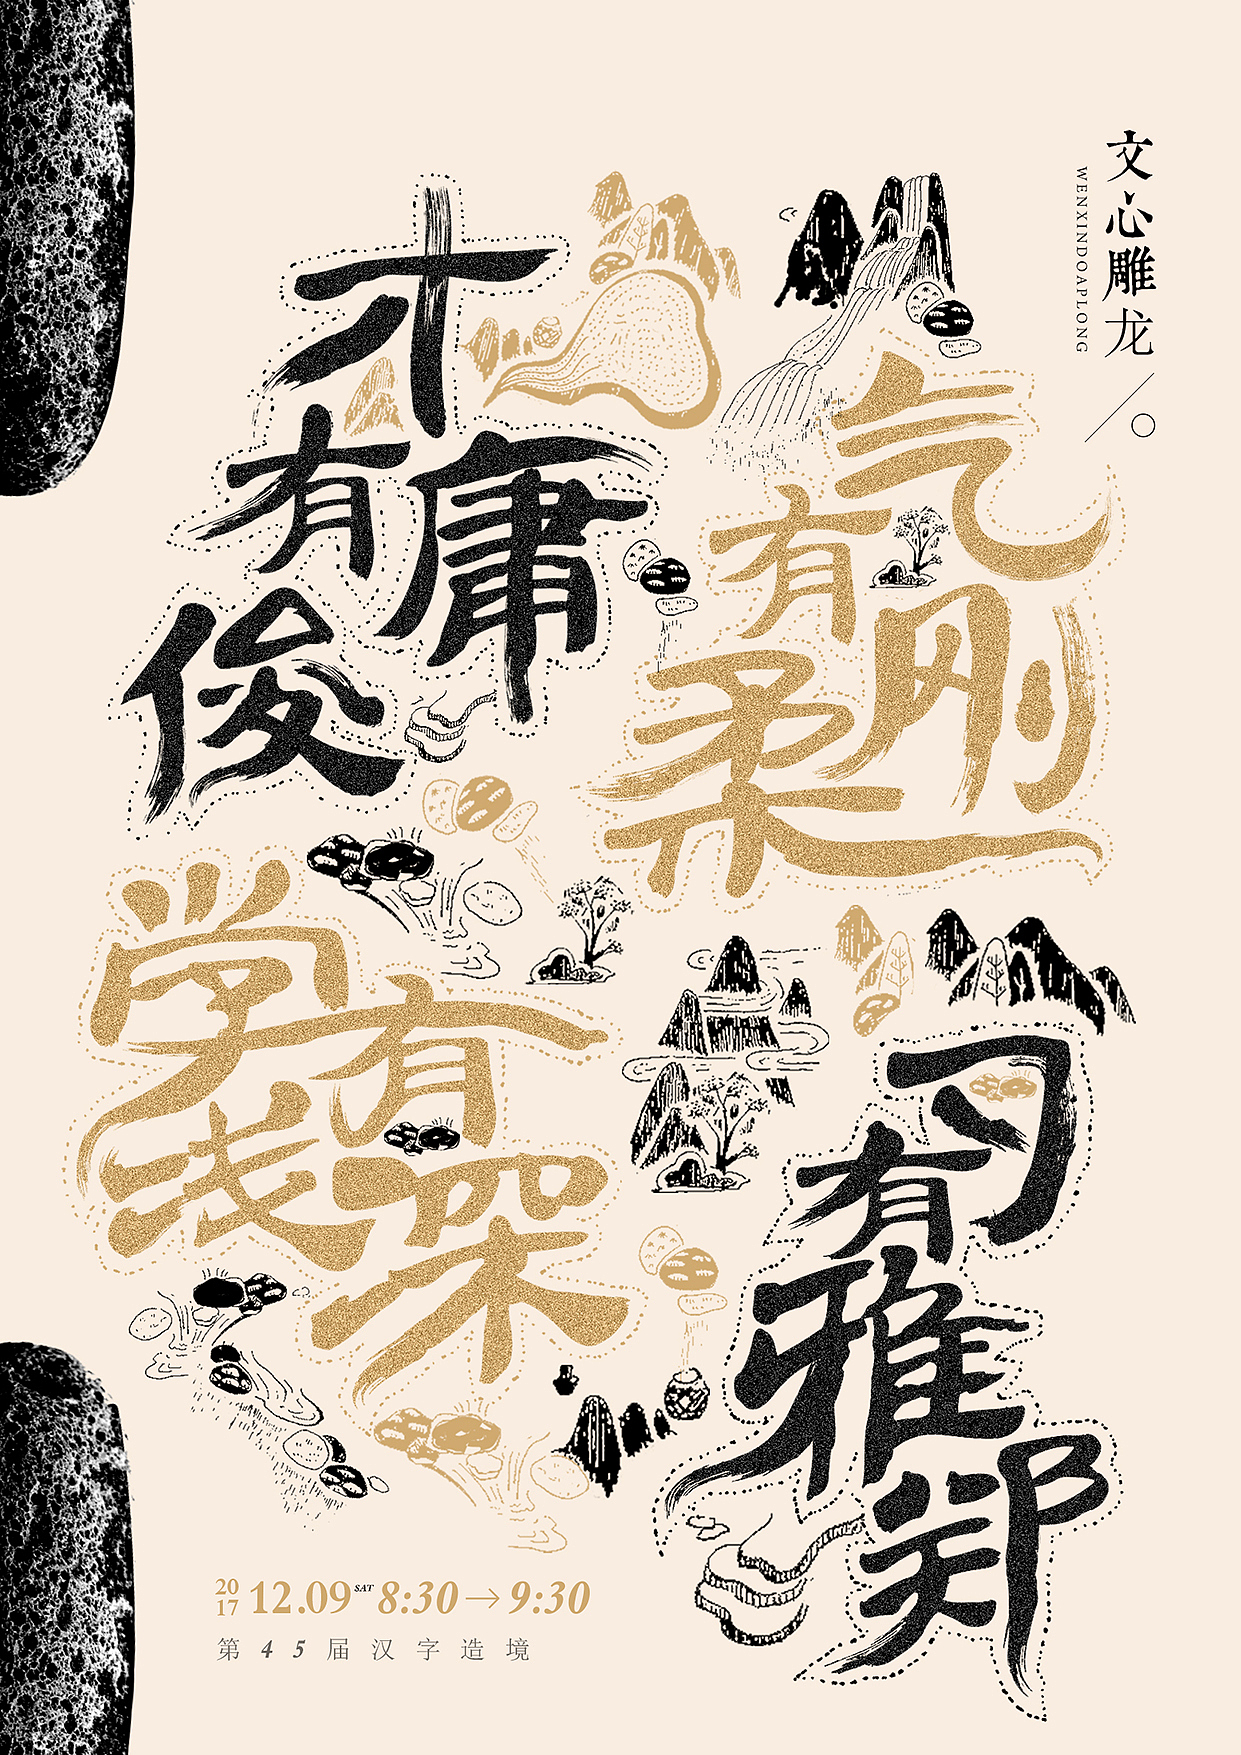 文心雕龙
WENXINDOAPLONG
才有庸俊
气有刚柔
学有浅深
习有雅郑
2017 12.09 SAT 8:30→9:30
第45届汉字造境